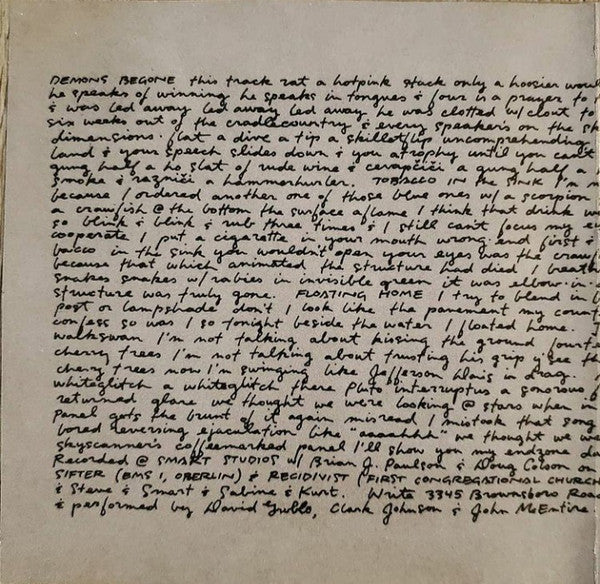 DEMONS BEGONE this track rat a hotpink stuck only a hoosier woul
he speaks of winning he speaks in tongues & four is a prayer to
& was led away led away led away he was clotted w/ clout to
six weeks out of the cradlecountry & every speaker's on the sk
dimensions. flat a dive a tip a skilletflip uncomprehending
land & your speech slides down & you atrophy until you can't
gung half a ho slat of rude wine & ćevapčići a gung half a
smoke & ražnići a hammerhurler. TOBACCO IN THE SINK I'm
because I ordered another one of those blue ones w/ a scorpion
a crawfish @ the bottom the surface aflame I think that drink w
so blink & blink & rub three times & I still can't focus my e
cooperate I put a cigarette in your mouth wrong end first &
bacco in the sink you wouldn't open your eyes was the craw
because that which animated the structure had died I breath
snakes snakes w/ rabies in invisible green it was elbow-in-
structure was truly gone. FLOATING HOME I try to blend in
post or lampshade don't I look like the pavement my coun
confess so was I so tonight beside the water I floated home.
walkswan I'm not talking about kissing the ground fourte
cherry trees I'm not talking about trusting his grip y'see th
cherry trees now I'm swinging like Jefferson Davis in drag.
whiteglitch a whiteglitch there Pluto interruptus a sonorous
returned glare we thought we were looking @ stars when in
panel gets the brunt of it again misread I mistook that song
bored reversing ejaculation like "aaaahhh" we thought we we
skyscanner's coffeemarked panel I'll show you my endzone da
Recorded @ SMART STUDIOS w/ Brian J. Paulson & Doug Colson on
SIFTER (EMS 1, OBERLIN) & RECIDIVIST (FIRST CONGREGATIONAL CHURCH
& Steve & Smart & Sabine & Kurt. Write 3345 Brownsboro Roa
& performed by David Grubbs, Clark Johnson & John McEntire